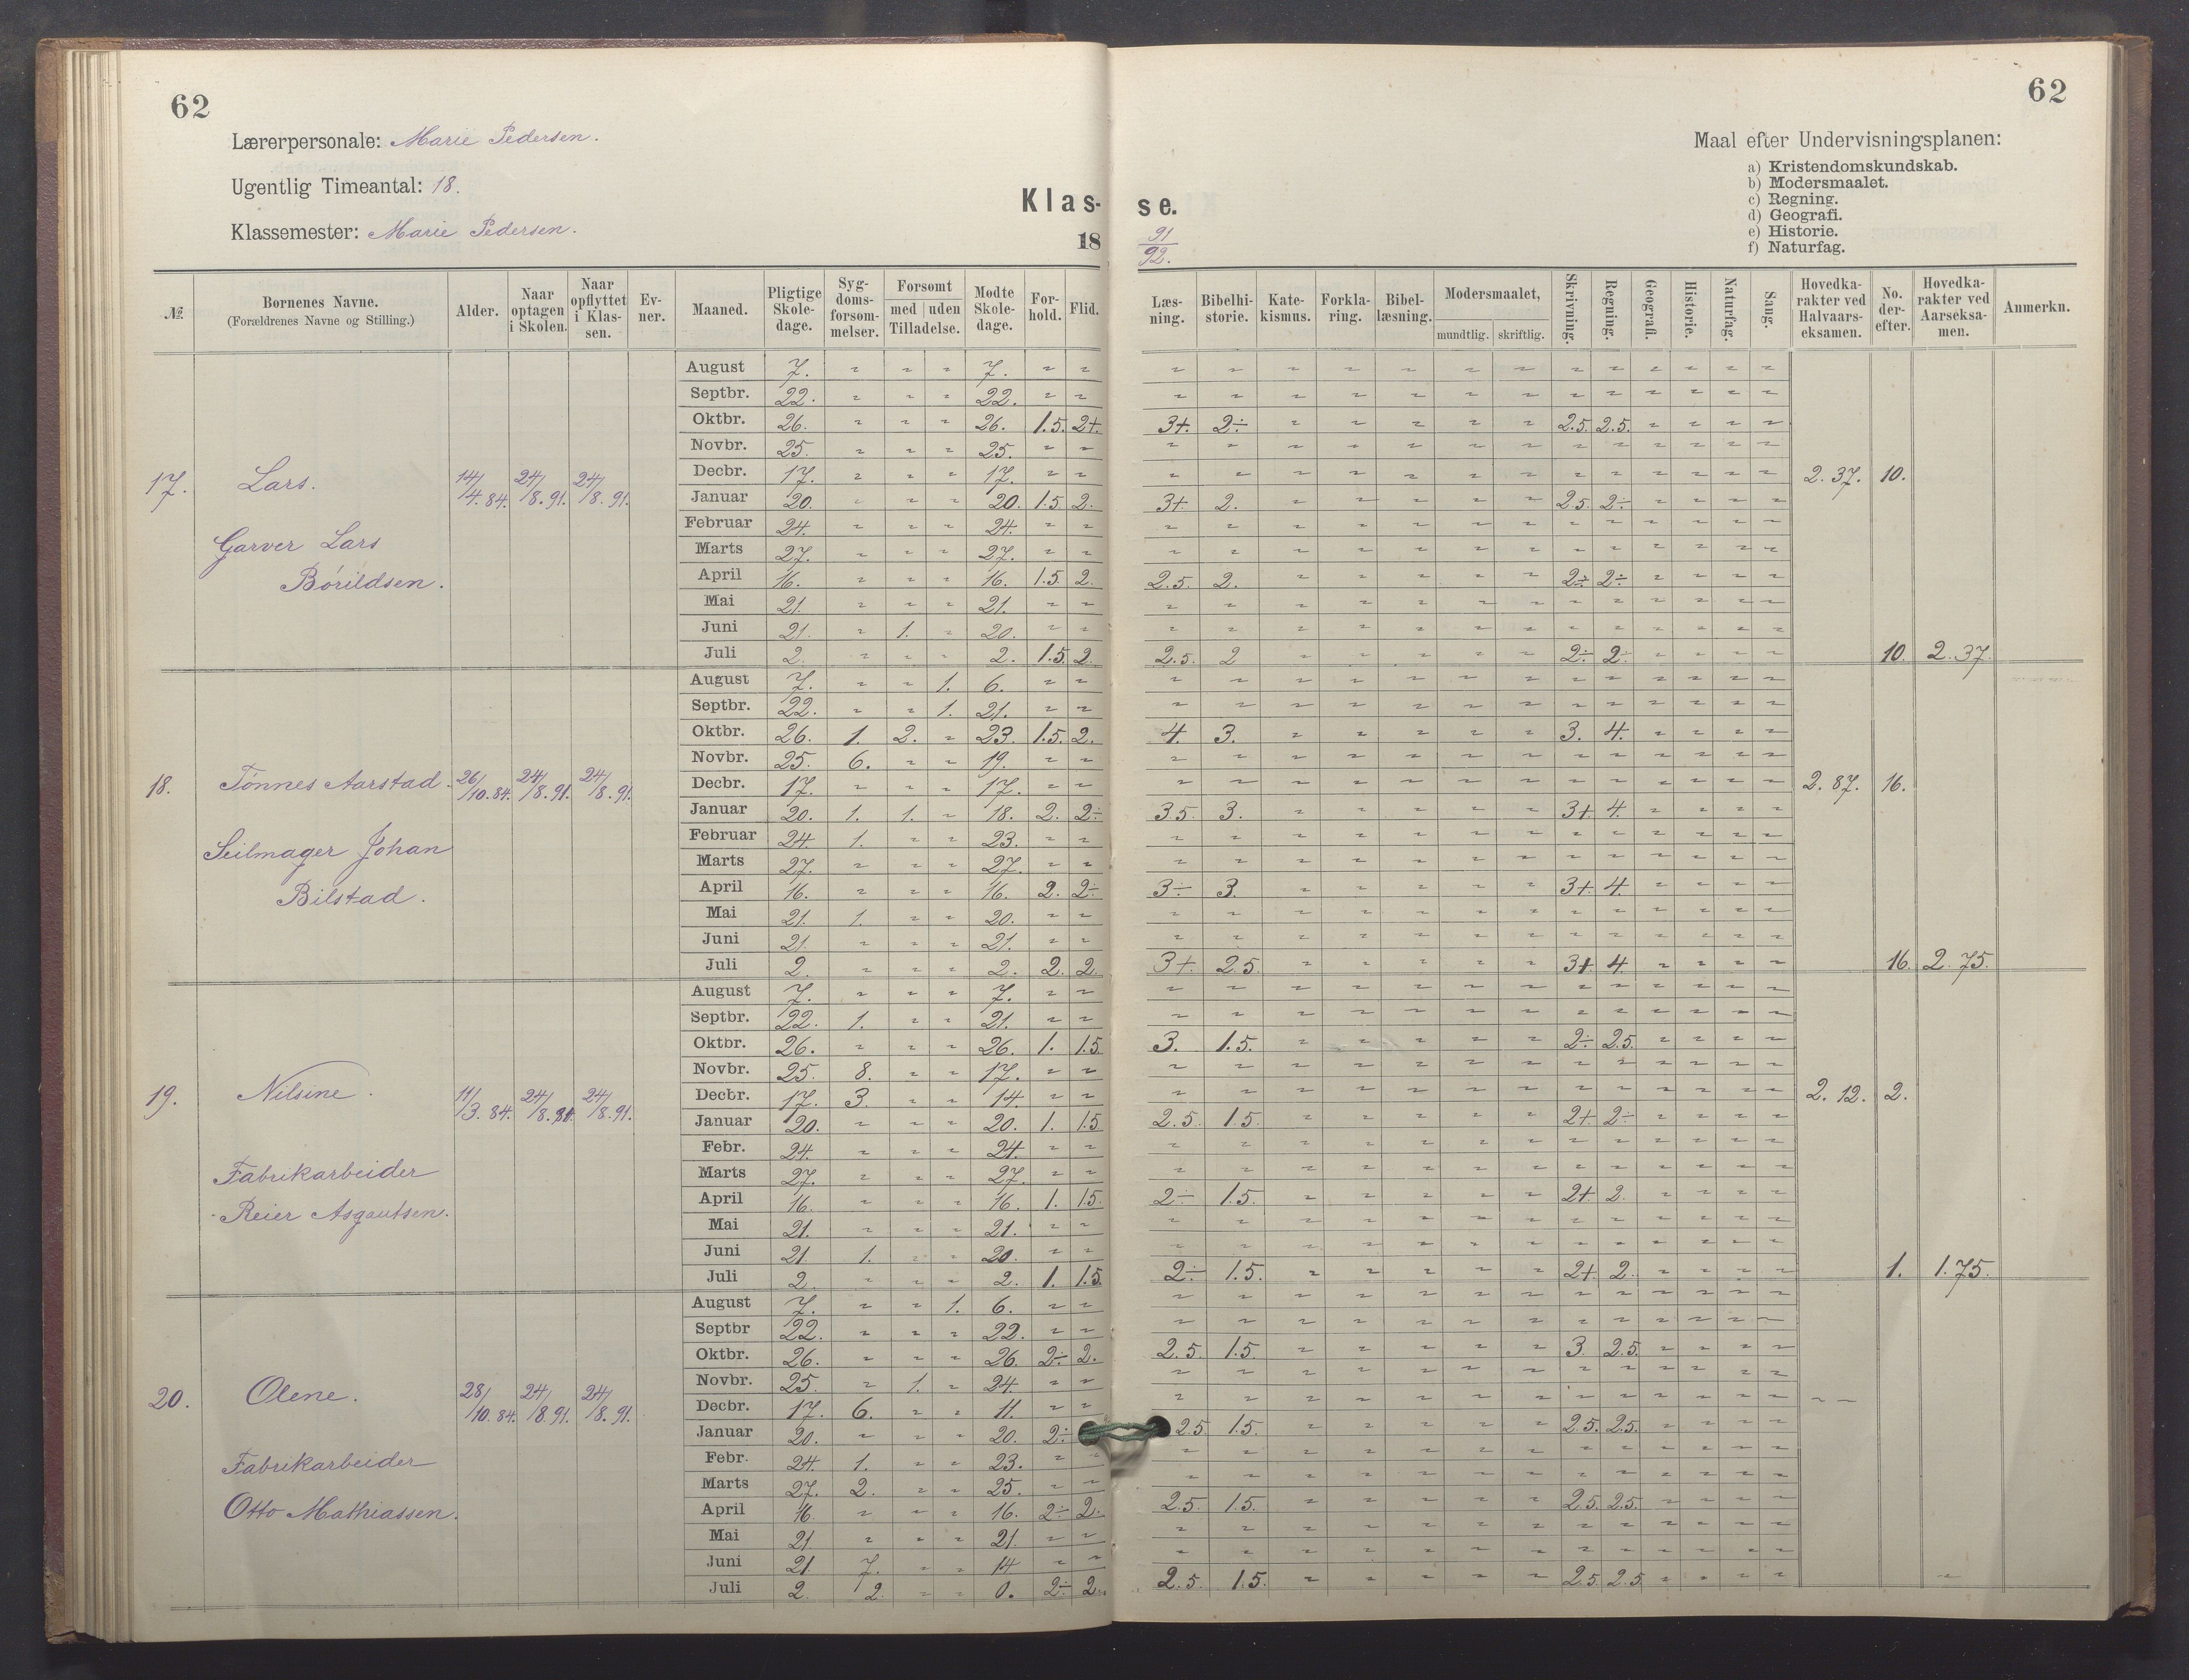 62
Lærerpersonale: Marie Pedersen.
Ugentlig Timeantal: 18.
Klassemester: Marie Pedersen.
Klas-
18
62
Maal efter Undervisningsplanen:
a) Kristendomskundskab.
b) Modersmaalet.
c) Regning.
d) Geografi.
e) Historie.
f) Naturfag.
se.
91/92.
№ Børnenes Navne. (Forældrenes Navne og Stilling.) Alder. Naar optagen i Skolen. Naar opflyttet i Klassen. Evner. Maaned. Pligtige Skoledage. Sygdomsforsømmelser. Forsømt med uden Tilladelse. Mødte Skoledage. Forhold. Flid. Læsning. Bibelhistorie. Katekismus. Forklaring. Bibellæsning. Modersmaalet, mundtlig. skriftlig. Skrivning. Regning. Geografi. Historie. Naturfag. Sang. Hovedkarakter ved Halvaarseksamen. No. derefter. Hovedkarakter ved Aarseksamen. Anmerkn.
17. Lars. 14/4. 84. 24/8. 91. 24/8. 91.
Garver Lars
Börildsen.
August 7. " " " 7. " "
Septbr. 22. " " " 22. " "
Oktbr. 26. " " " 26. 1.5. 2+. 3+. 2÷ " " " " " 2.5. 2.5. " " " "
Novbr. 25. " " " 25. " "
Decbr. 17. " " " 17. " " 2.37. 10.
Januar 20. " " " 20. 1.5. 2. 3+ 2. " " " " " 2.5. 2÷ " " " "
Februar 24. " " " 24. " "
Marts 27. " " " 27. " "
April 16. " " " 16. 1.5. 2. 2.5. 2. " " " " " 2÷ 2÷ " " " "
Mai 21. " " " 21. " "
Juni 21. " 1. " 20. " "
Juli 2. " " " 2. 1.5. 2. 2.5. 2 " " " " " 2÷ 2÷ " " " " 10. 2.37.
18. Tönnes Aarstad. 26/10. 84. 24/8. 91. 24/8. 91.
Seilmager Johan
Bilstad.
August 7. " " 1. 6. " "
Septbr. 22. " " 1. 21. " "
Oktbr. 26. 1. 2. " 23. 1.5. 2. 4. 3. " " " " " 3. 4. " " " "
Novbr. 25. 6. " " 19. " "
Decbr. 17. " " " 17. " " 2.87. 16.
Januar 20. 1. 1. " 18. 2. 2÷ 3.5. 3. " " " " " 3+. 4. " " " "
Februar 24. 1. " " 23. " "
Marts 27. " " " 27. " "
April 16. " " " 16. 2. 2÷ 3÷ 3. " " " " " 3+. 4. " " " "
Mai 21. 1. " " 20. " "
Juni 21. " " " 21. " "
Juli 2. " " " 2. 2. 2. 3+. 2.5. " " " " " 3+. 4. " " " " 16. 2.75.
19. Nilsine. 11/3. 84. 24/8. 91. 24/8. 91.
Fabrikarbeider
Reier Asgautsen.
August 7. " " " 7. " "
Septbr. 22. 1. " " 21. " "
Oktbr. 26. " " " 26. 1. 1.5. 3. 1.5. " " " " " 2÷ 2.5. " " " "
Novbr. 25. 8. " " 17. " "
Decbr. 17. 3. " " 14. " " 2.12. 2.
Januar 20. " " " 20. 1. 1.5 2.5. 1.5. " " " " " 2+. 2÷ " " " "
Febr. 24. " " " 24. " "
Marts 27. " " " 27. " "
April 16. " " " 16. 1. 1.5. 2÷ 1.5. " " " " " 2+. 2. " " " "
Mai 21. " " " 21. " "
Juni 21. 1. " " 20. " "
Juli 2. " " " 2. 1. 1.5. 2÷ 1.5. " " " " " 2+. 2. " " " " 1. 1.75.
20. Olene. 28/10. 84. 24/8. 91. 24/8. 91.
Fabrikarbeider
Otto Mathiassen.
August 7. " " 1. 6. " "
Septbr 22. " " " 22. " "
Oktbr. 26. " " " 26. 2÷ 2. 2.5. 1.5. " " " " " 3. 2.5. " " " "
Novbr. 25. " 1. " 24. " "
Decbr. 17. 6. " " 11. " " " "
Januar 20. " " " 20. 2÷ 2.5 1.5. " " " " " 2.5. 2.5. " " " "
Febr. 24. 1. " " 23. " "
Marts 27. 2. " " 25. " "
April 16. " " " 16. 2÷ 2. 2.5. 1.5. " " " " " 2.5. 2.5. " " " "
Mai 21. " " " 21. " "
Juni 21. 7. " " 14. " "
Juli 2. 2. " " 0. 2÷ 2. 2.5. 1.5. " " " " " 2.5. 2.5 " " " " "